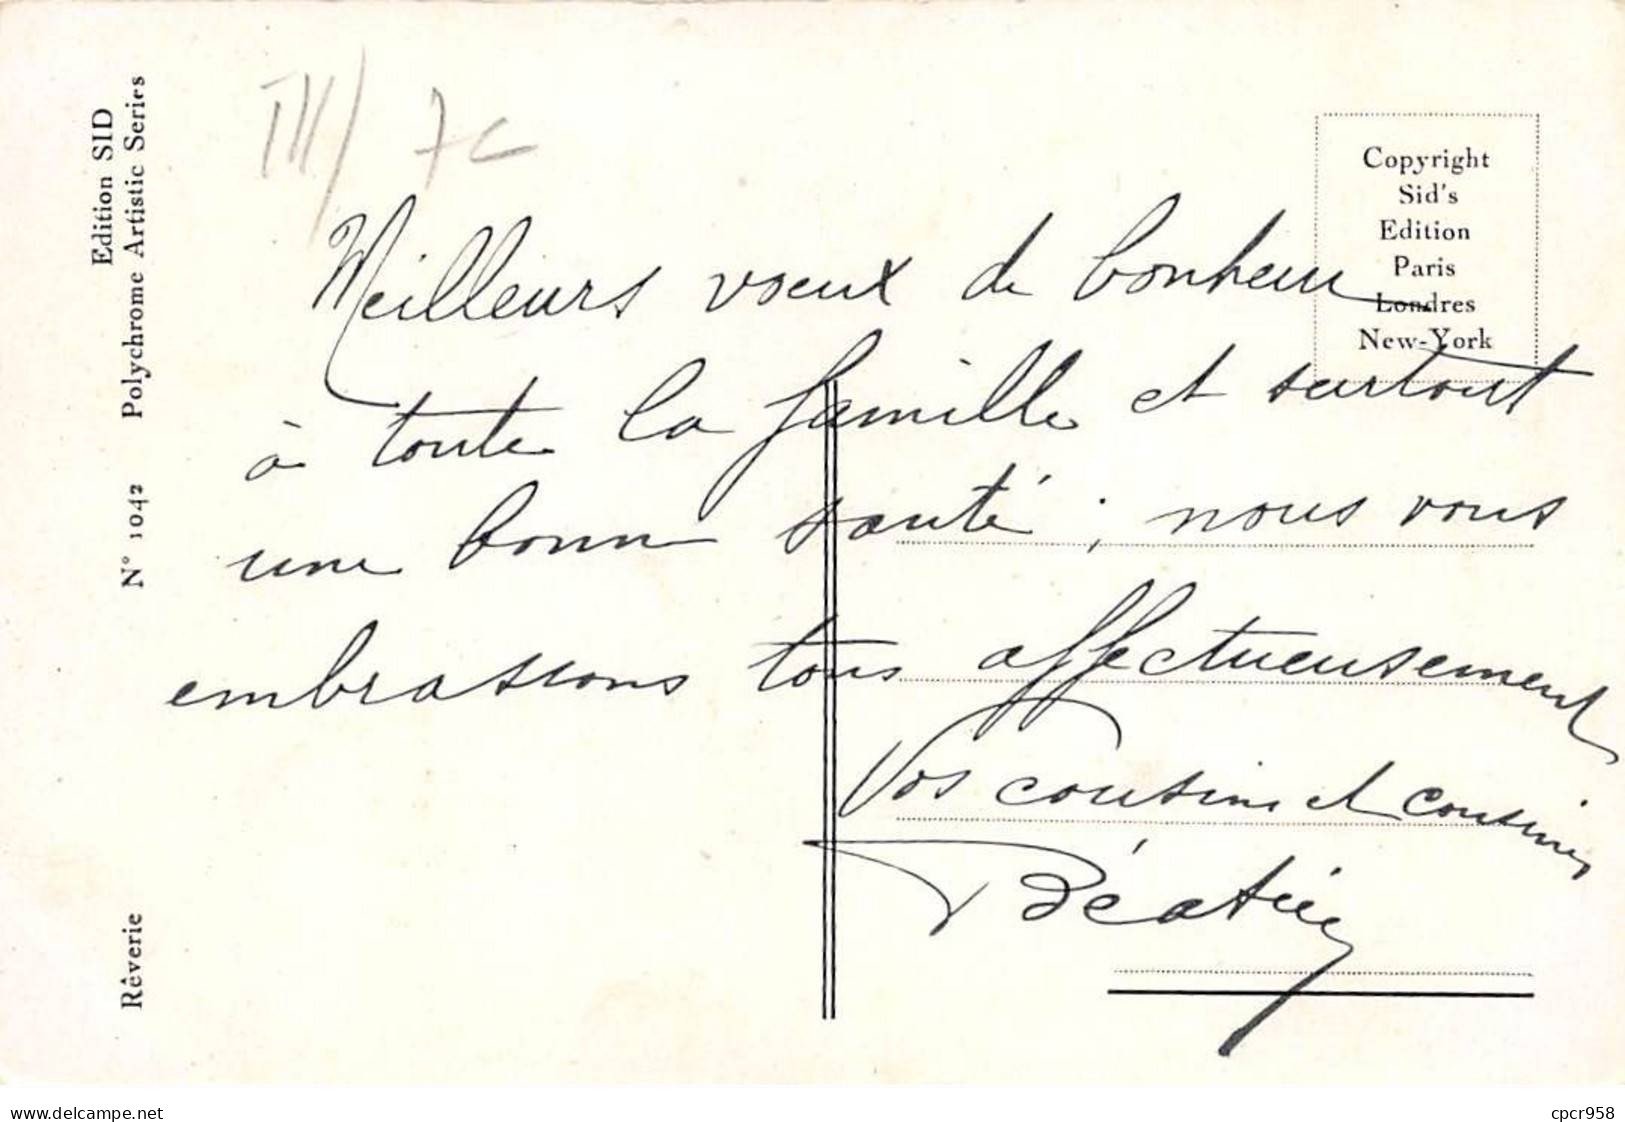 Edition SID
N° 1042 Polychrome Artistic Series
Rêverie
Copyright
Sid's
Edition
Paris
Londres
New-York
Meilleurs vœux de bonheur
à toute la famille et surtout
une bonne santé ; nous vous
embrassons tous affectueusement
Vos cousins et cousines
www.delcampe.net
cpcr958